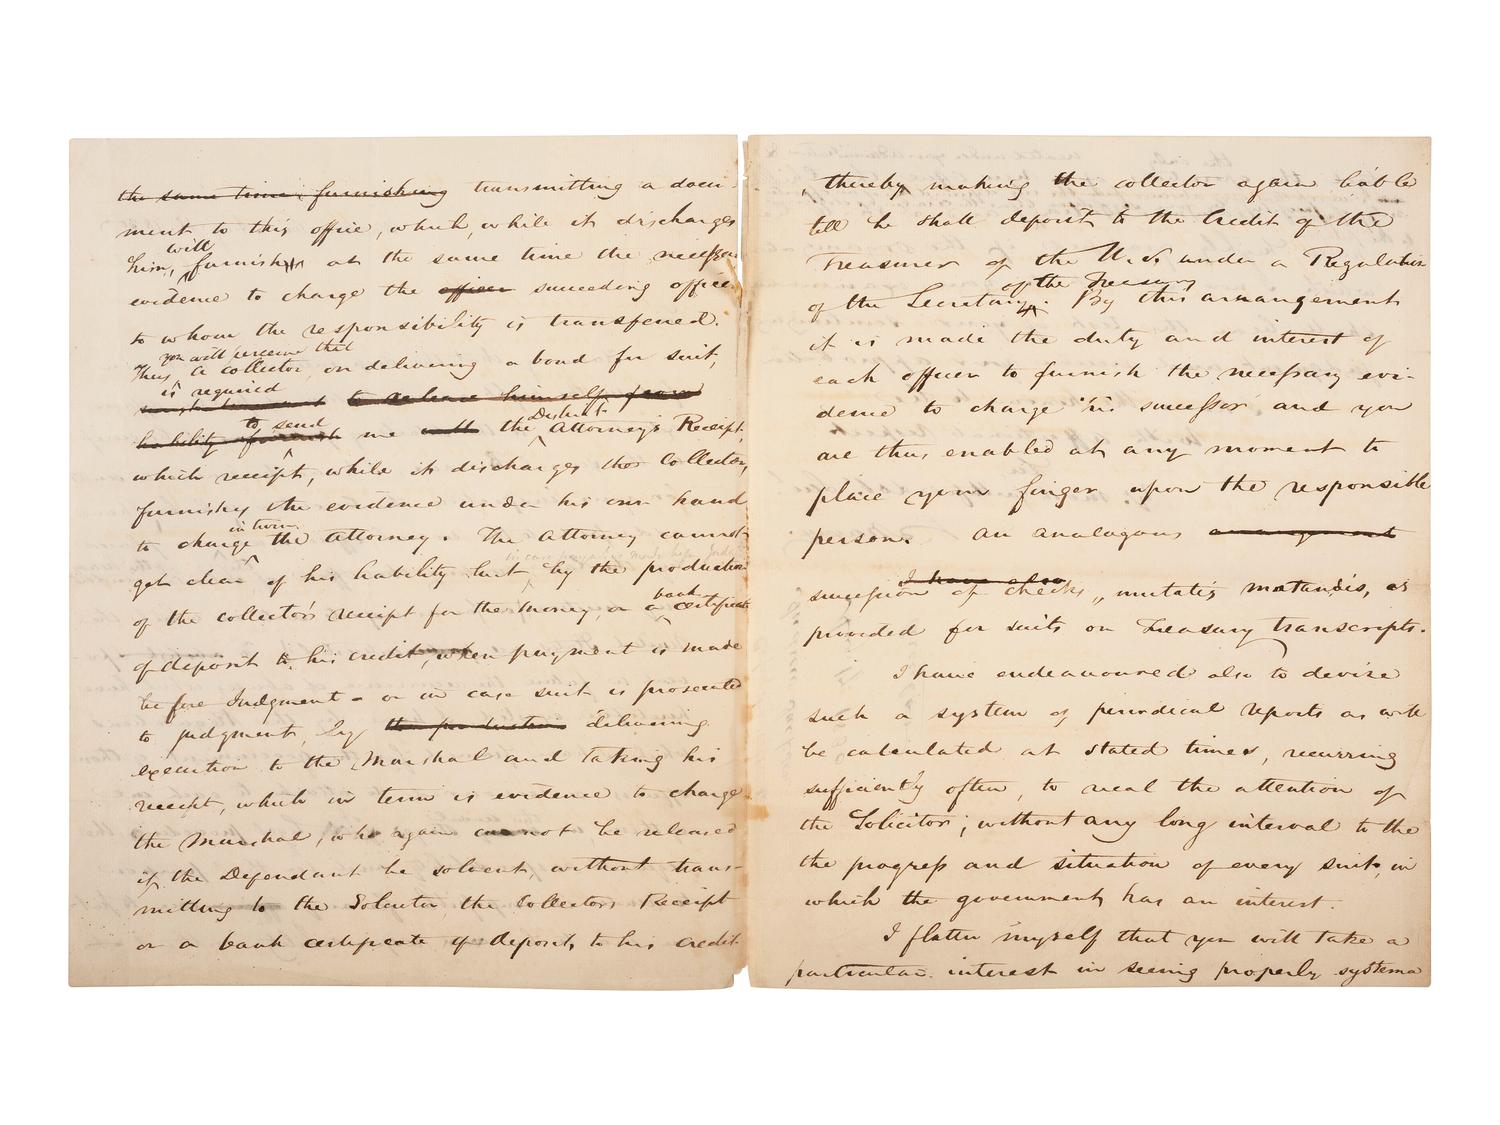 the same time furnishing transmitting a docu-
ment to this office, which, while it discharges
will
him, furnish at the same time the necessary
evidence to charge the officer succeeding officer
to whom the responsibility is transferred.
you will perceive that
Thus, a collector, on delivering a bond for suit,
is required
to release himself from
to send District
liability me with the Attorney's Receipt,
which receipt, while it discharges the Collector,
furnishes the evidence under his own hand
in turn
to charge the attorney. The Attorney cannot
get clear of his liability but by the production
bank
of the collector's receipt for the money, or a certificate
of deposit to his credit, when payment is made
before Judgment - or in case suit is prosecuted
to judgment, by the production delivering
execution to the Marshal and taking his
receipt, which in turn is evidence to charge
the Marshal, who again cannot be released
if the Defendant be solvent, without trans-
mitting to the Solicitor the Collector's Receipt
or a bank certificate of deposit, to his credit
, thereby making the collector again liable
till he shall deposit to the Credit of the
Treasurer of the U.S. under a Regulation
of the Treasury
of the Secretary. By this arrangement
it is made the duty and interest of
each officer to furnish the necessary evi-
dence to charge his successor and you
are thus enabled at any moment to
place your finger upon the responsible
person. An analagous arrangement
I have also
succession of checks, mutatis mutandis, is
provided for suits on Treasury transcripts.
I have endeavoured also to devise
such a system of periodical reports as will
be calculated at stated times, recurring
sufficiently often, to recal the attention of
the Solicitor, without any long interval to the
the progress and situation of every suit, in
which the government has an interest.
I flatter myself that you will take a
particular interest in seeing properly systema